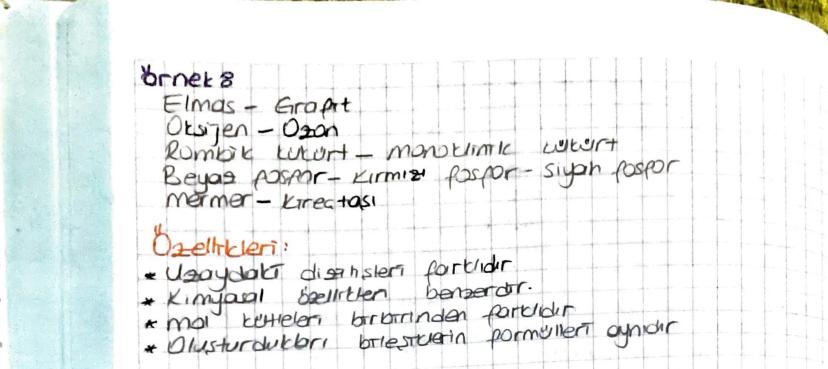 Örnek 8
Elmas - Grafit
Oksijen - Ozon
Rombik kükürt - monoklinik kükürt
Beyaz fosfor - kırmızı fosfor - siyah fosfor
mermer - kireçtaşı
Özellikleri:
* Uzaydaki dizilişleri farklıdır
* Kimyasal özellikleri benzerdir.
* mol kütleleri birbirinden farklıdır
* Oluşturdukları bileşiklerin formülleri aynıdır